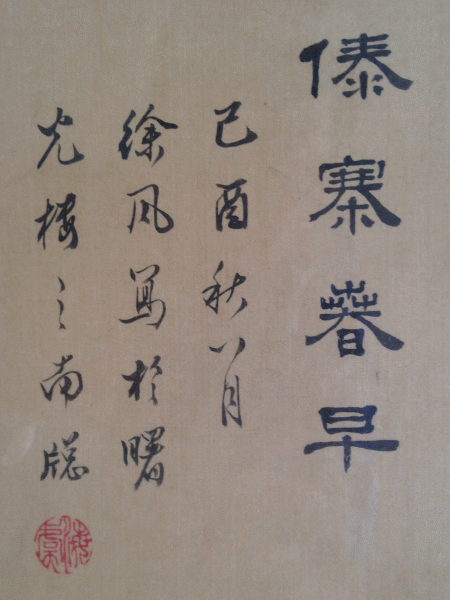 傣寨春早
己酉秋八月
徐风写於曙
光楼之南牕